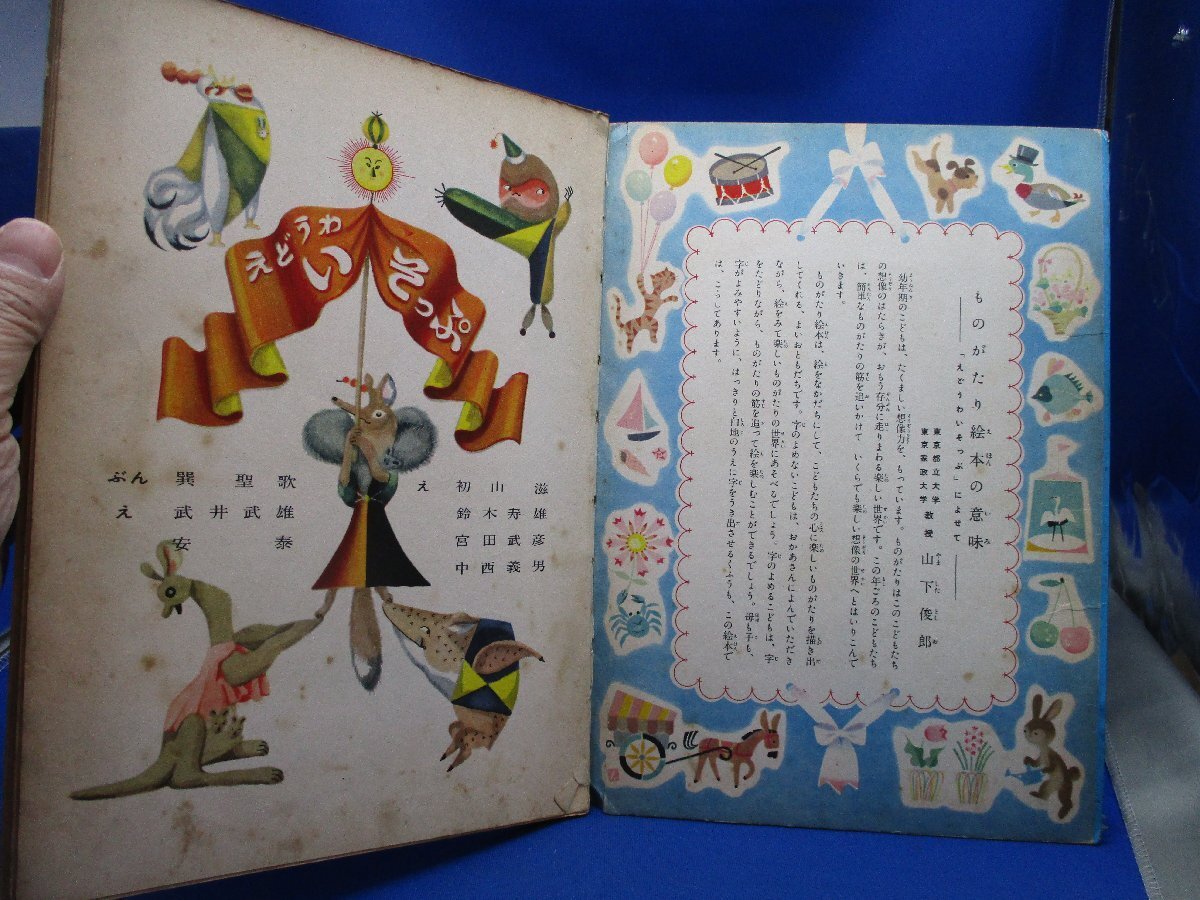 えどうわ
いそっぷ
ぶん 巽聖歌
え 武井武雄
安泰
え 初山滋
鈴木寿雄
宮田武彦
中西義男
ものがたり絵本の意味
――「えどうわいそっぷ」によせて――
東京都立大学
東京家政大学 教授 山下俊郎
幼年期のこどもは、たくましい想像力を、もっています。ものがたりはこのこどもたち
の想像のはたらきが、おもう存分に走りまわる楽しい世界です。この年ごろのこどもたち
は、簡単なものがたりの筋を追いかけて いくらでも楽しい想像の世界へとはいりこんで
いきます。
ものがたり絵本は、絵をなかだちにして、こどもたちの心に楽しいものがたりを描き出
してくれる、よいおともだちです。字のよめないこどもは、おかあさんによんでいただき
ながら、絵をみて楽しいものがたりの世界にあそべるでしょう。字のよめるこどもは、字
をたどりながら、ものがたりの筋を追って絵を楽しむことができるでしょう。母も子も、
字がよみやすいように、はっきりと白地のうえに字をうき出させるくふうも、この絵本で
は、こらしてあります。